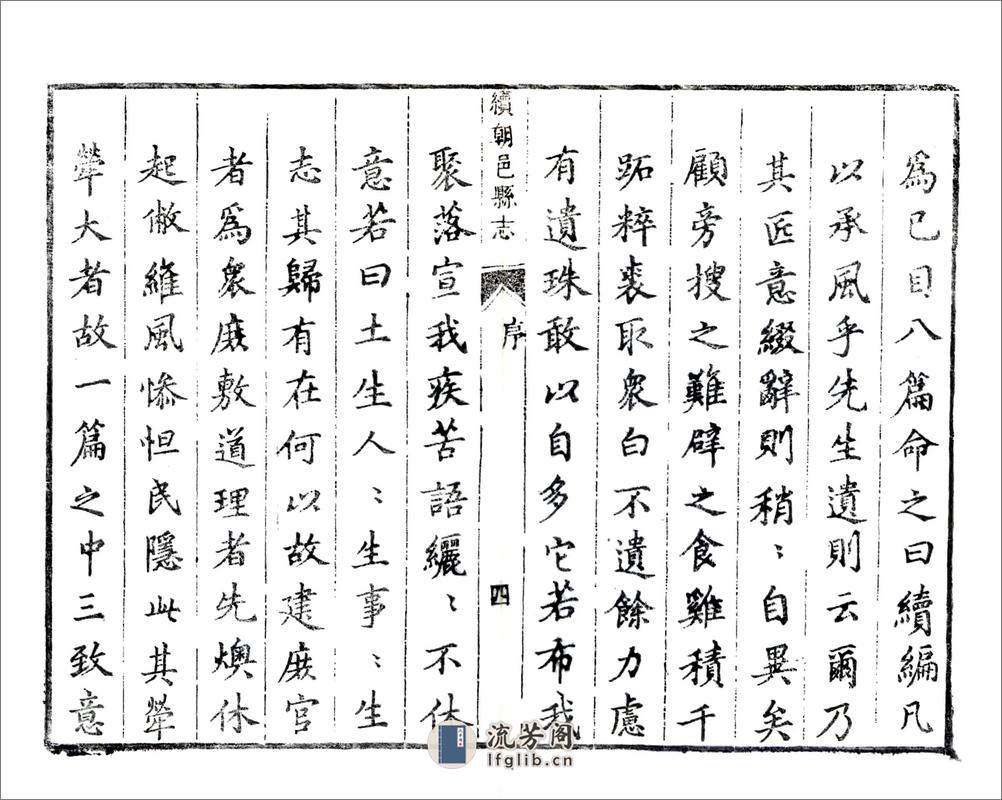 爲已目八篇命之曰續編凡
以承風乎先生遺則云爾乃
其匠意綴辭則稍〻自異矣
顧旁搜之難辟之食雞積千
跖粹裘取衆白不遺餘力慮
有遺珠敢以自多它若布我
續朝邑縣志
序
四
聚落宣我疾苦語纚〻不休
意若曰土生人〻生事〻生
志其歸有在何以故建庻官
者爲衆庻敷道理者先燠休
起僘維風慘怛民隱此其犖
犖大者故一篇之中三致意
流芳阁
lfglib.cn